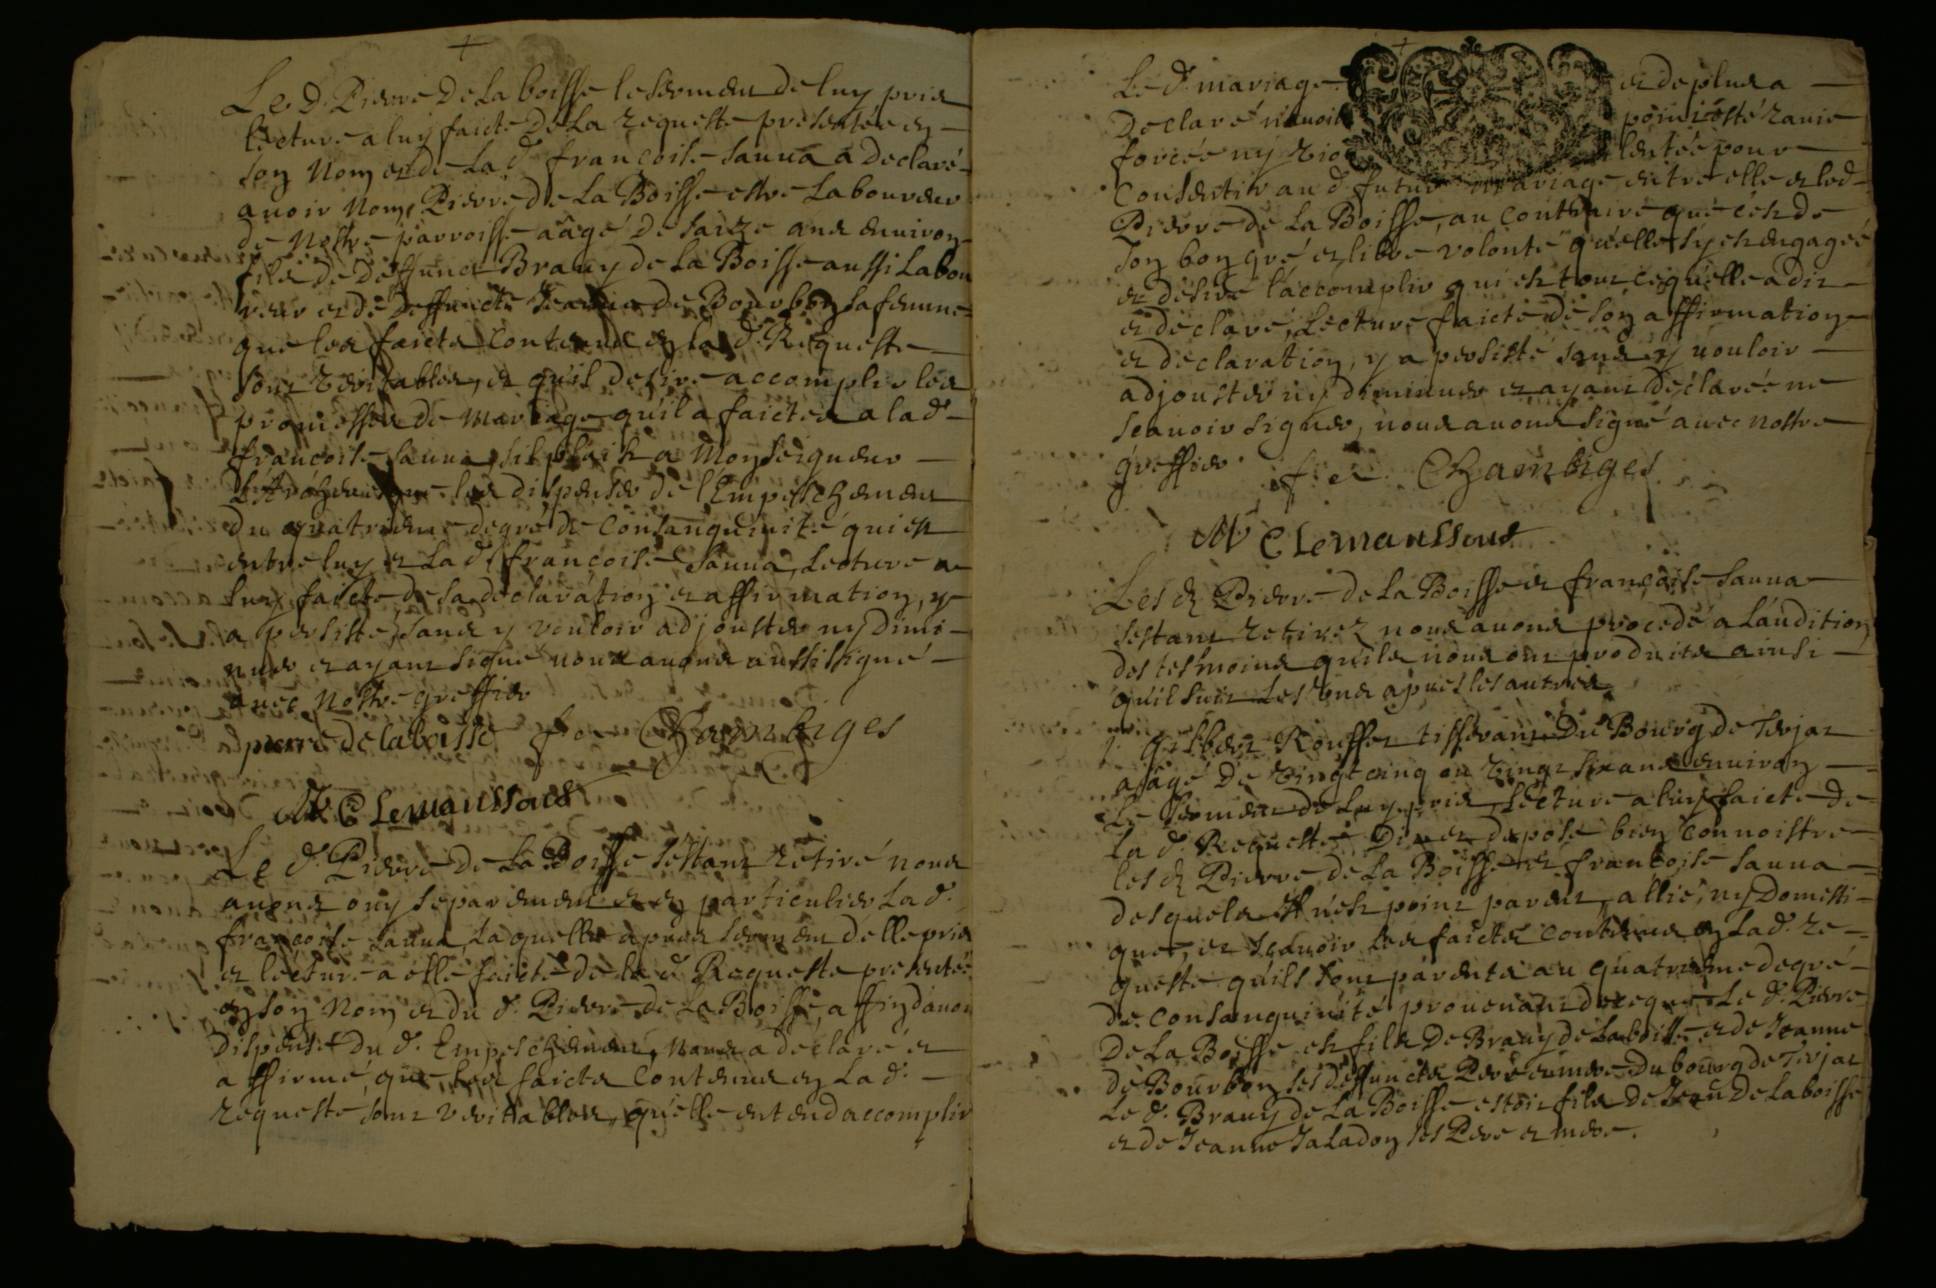 Le d. Pierre de La boisse le serment de luy pris
lecture a luy faicte de La requeste presentée en
son Nom et de La d. françoise sauna a declaré
auoir Nom Pierre de La Boisse estre Laboureur
de Nostre parroisse aagé de saize ans enuiron
fils de deffunct Brauy de La Boisse aussi Labou
reur et de deffuncte Jeanne de Bourbon sa femme
que les faicts contenus en la d. Requeste
sont veritables, et qu'il desire accomplir les
promesses de mariage qu'il a faictes a lad.
francoise sauna sil plaist a Monseigneur
L'Archeuesque les dispenser de l'Empeschement
du quatrieme degré de Consanguinité qui est
entre luy et La d. françoise Sauna, Lecture a
luy faicte de sa declaration et affirmation, y
a persisté, sans y vouloir adjouster ny dimi-
nuer et ayant signé nous auons aussi signé
auec Nostre greffier
pierre de laboisse Chambiges
Clemanssous
Le d. Pierre de La Boisse sestant retiré nous
auons ouy separement et en particulier La d.
françoise sauna Laquelle apres serment delle pris
et lecture a elle faicte de la d. Requeste presentée
en son Nom et du d. Pierre de La Boisse, affin dauoir
dispense du d. Empeschement, Nous a declaré et
affirmé, que les faicts contenus en La d.
requeste sont veritables, qu'elle entend accomplir
Le d. mariage et de plus a
declaré n'auoir point esté rauie
forcée ny vio lentée pour
consentir au d. futur mariage entre elle et led.
Pierre de La Boisse, au contraire que c'est de
son bon gré et libre volonté qu'elle s'y est engagée
et desire l'accomplir qui est tout ce qu'elle a dit
et declaré, Lecture faicte de son affirmation
et declaration, y a persisté sans y vouloir
adjouster ny diminuer et ayant declarée ne
scauoir signer, nous auons signé auec nostre
greffier. Chambiges
Clemanssous
Les d. Pierre de La Boisse et françoise sauna
sestant retirez nous auons procedé a L'audition
des tesmoins qu'ils nous ont produits ainsi
qu'il suit Les uns apres les autres
Gilbert Rouffet tisserant Du Bourg de Terjat
aagé de vingt cinq ou vingt six ans enuiron
Le serment de Luy pris, Lecture a luy faicte de
La d. Requeste, Dit et depose bien connoistre
les d. Pierre de La Boisse et francoise sauna
desquels Il n'est point parent, allié, ny Domesti-
que, et scauoir Les faicts contenus en La d. re-
queste qu'ils sont parents au quatrieme degré
de consanguinité prouenant de ce que Le d. Pierre
De La Boisse est fils De Brauy de La boisse et de Jeanne
de Bourbon ses deffuncts Pere et mere Du bourg de Terjat
Le d. Brauy de La Boisse estoit fils de Jean De Laboisse
et de Jeanne Jaladon ses Pere et mere.